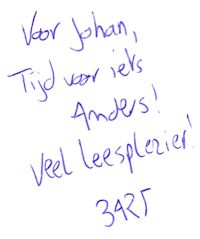 Voor Johan,
Tijd voor iets
Anders!
Veel leesplezier!
BART